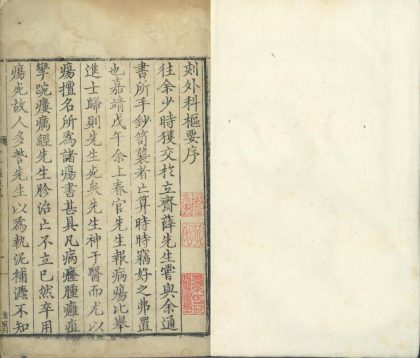 刻外科樞要序
往余少時獲交於立齋薛先生嘗與余通
書所手鈔笥蘘者亡算時時竊好之弗置
也嘉靖戊午余上春官先生報病瘍比舉
進士歸則先生死矣先生神于醫而尤以
瘍擅名所為諸瘍書甚具凡病瘞腫癰疽
攣踠瘻癘經先生診治亡不立已然卒用
瘍死故人多訾先生以為執泥補瀉不知